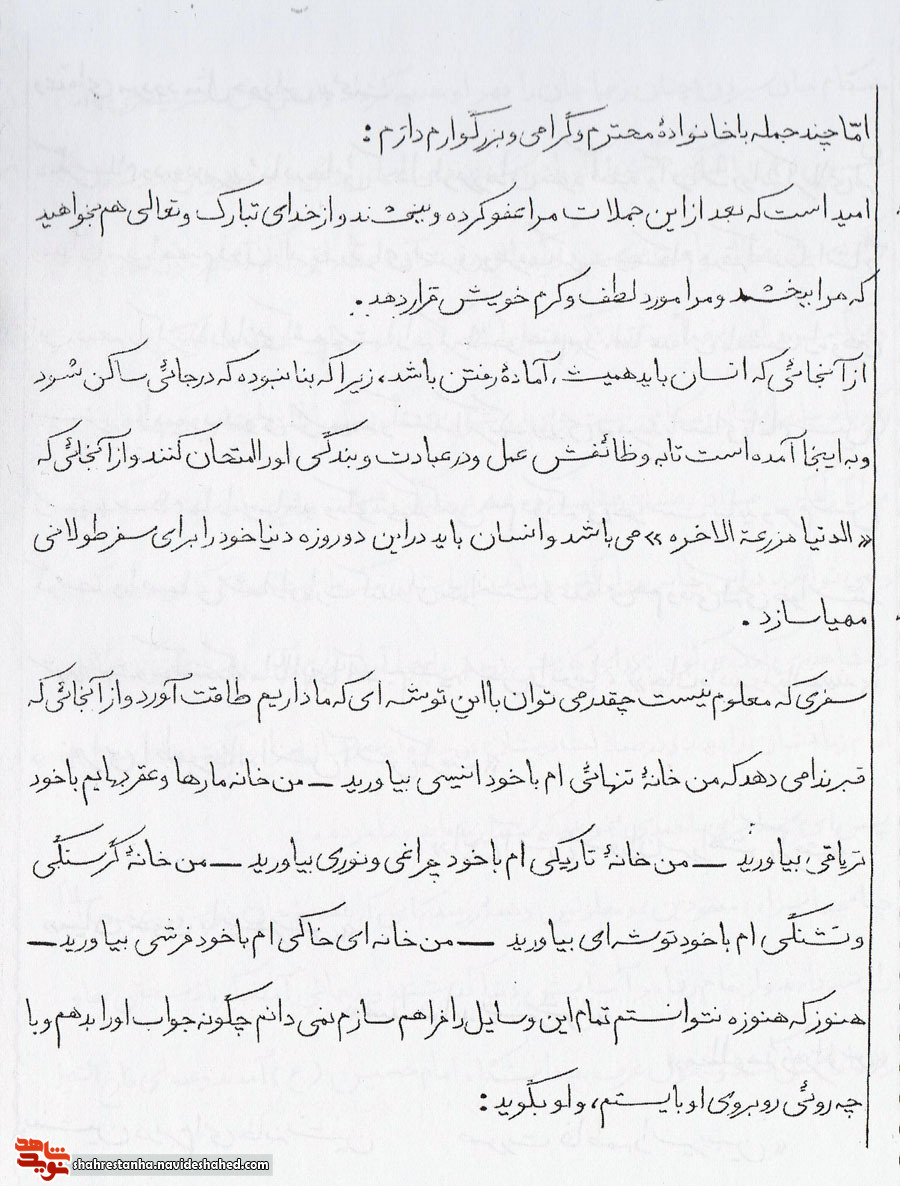 امّا چند جمله با خانوادهٔ محترم و گرامی و بزرگوارم دارم :
امید است که بعد از این جملات مرا عفو کرده و ببخشند و از خدای تبارک و تعالی هم بخواهید
که مرا ببخشد و مرا مورد لطف و کرم خویش قرار دهد .
از آنجائی که انسان باید همیشه آمادهٔ رفتن باشد، زیرا که بنا نبوده که در جائی ساکن شود
و به اینجا آمده است تا به وظائفش عمل و در عبادت و بندگی او را امتحان کنند و از آنجائی که
« الدنیا مزرعة الاخره » می باشد و انسان باید در این دو روزه دنیا خود را برای سفر طولانی
مهیا سازد .
سفری که معلوم نیست چقدر می توان با این توشه ای که ما داریم طاقت آورد و از آنجائی که
قبر ندا می دهد که من خانهٔ تنهائی ام با خود انیسی بیاورید — من خانه مارها و عقربهایم با خود
تریاقی بیاورید — من خانهٔ تاریکی ام با خود چراغی و نوری بیاورید — من خانهٔ گرسنگی
و تشنگی ام با خود توشه ای بیاورید — من خانه ای خاکی ام با خود فرشی بیاورید —
هنوز که هنوزه نتوانستم تمام این وسایل را فراهم سازم نمی دانم چگونه جواب او را بدهم و با
چه روئی روبروی او بایستم، و او بگوید :
نوید شاهد
shahrestanha.navideshahed.com